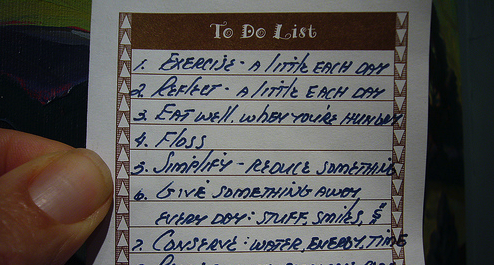 To Do List
1. EXERCISE - A little EACH DAY
2. REFLECT - A little EACH DAY
3. EAT WELL. WHEN YOU'RE HUNGRY
4. FLOSS
5. SIMPLIFY - REDUCE SOMETHING
6. GIVE SOMETHING AWAY
EVERY DAY: STUFF, SMILES, $
7. CONSERVE: WATER, ENERGY, TIME